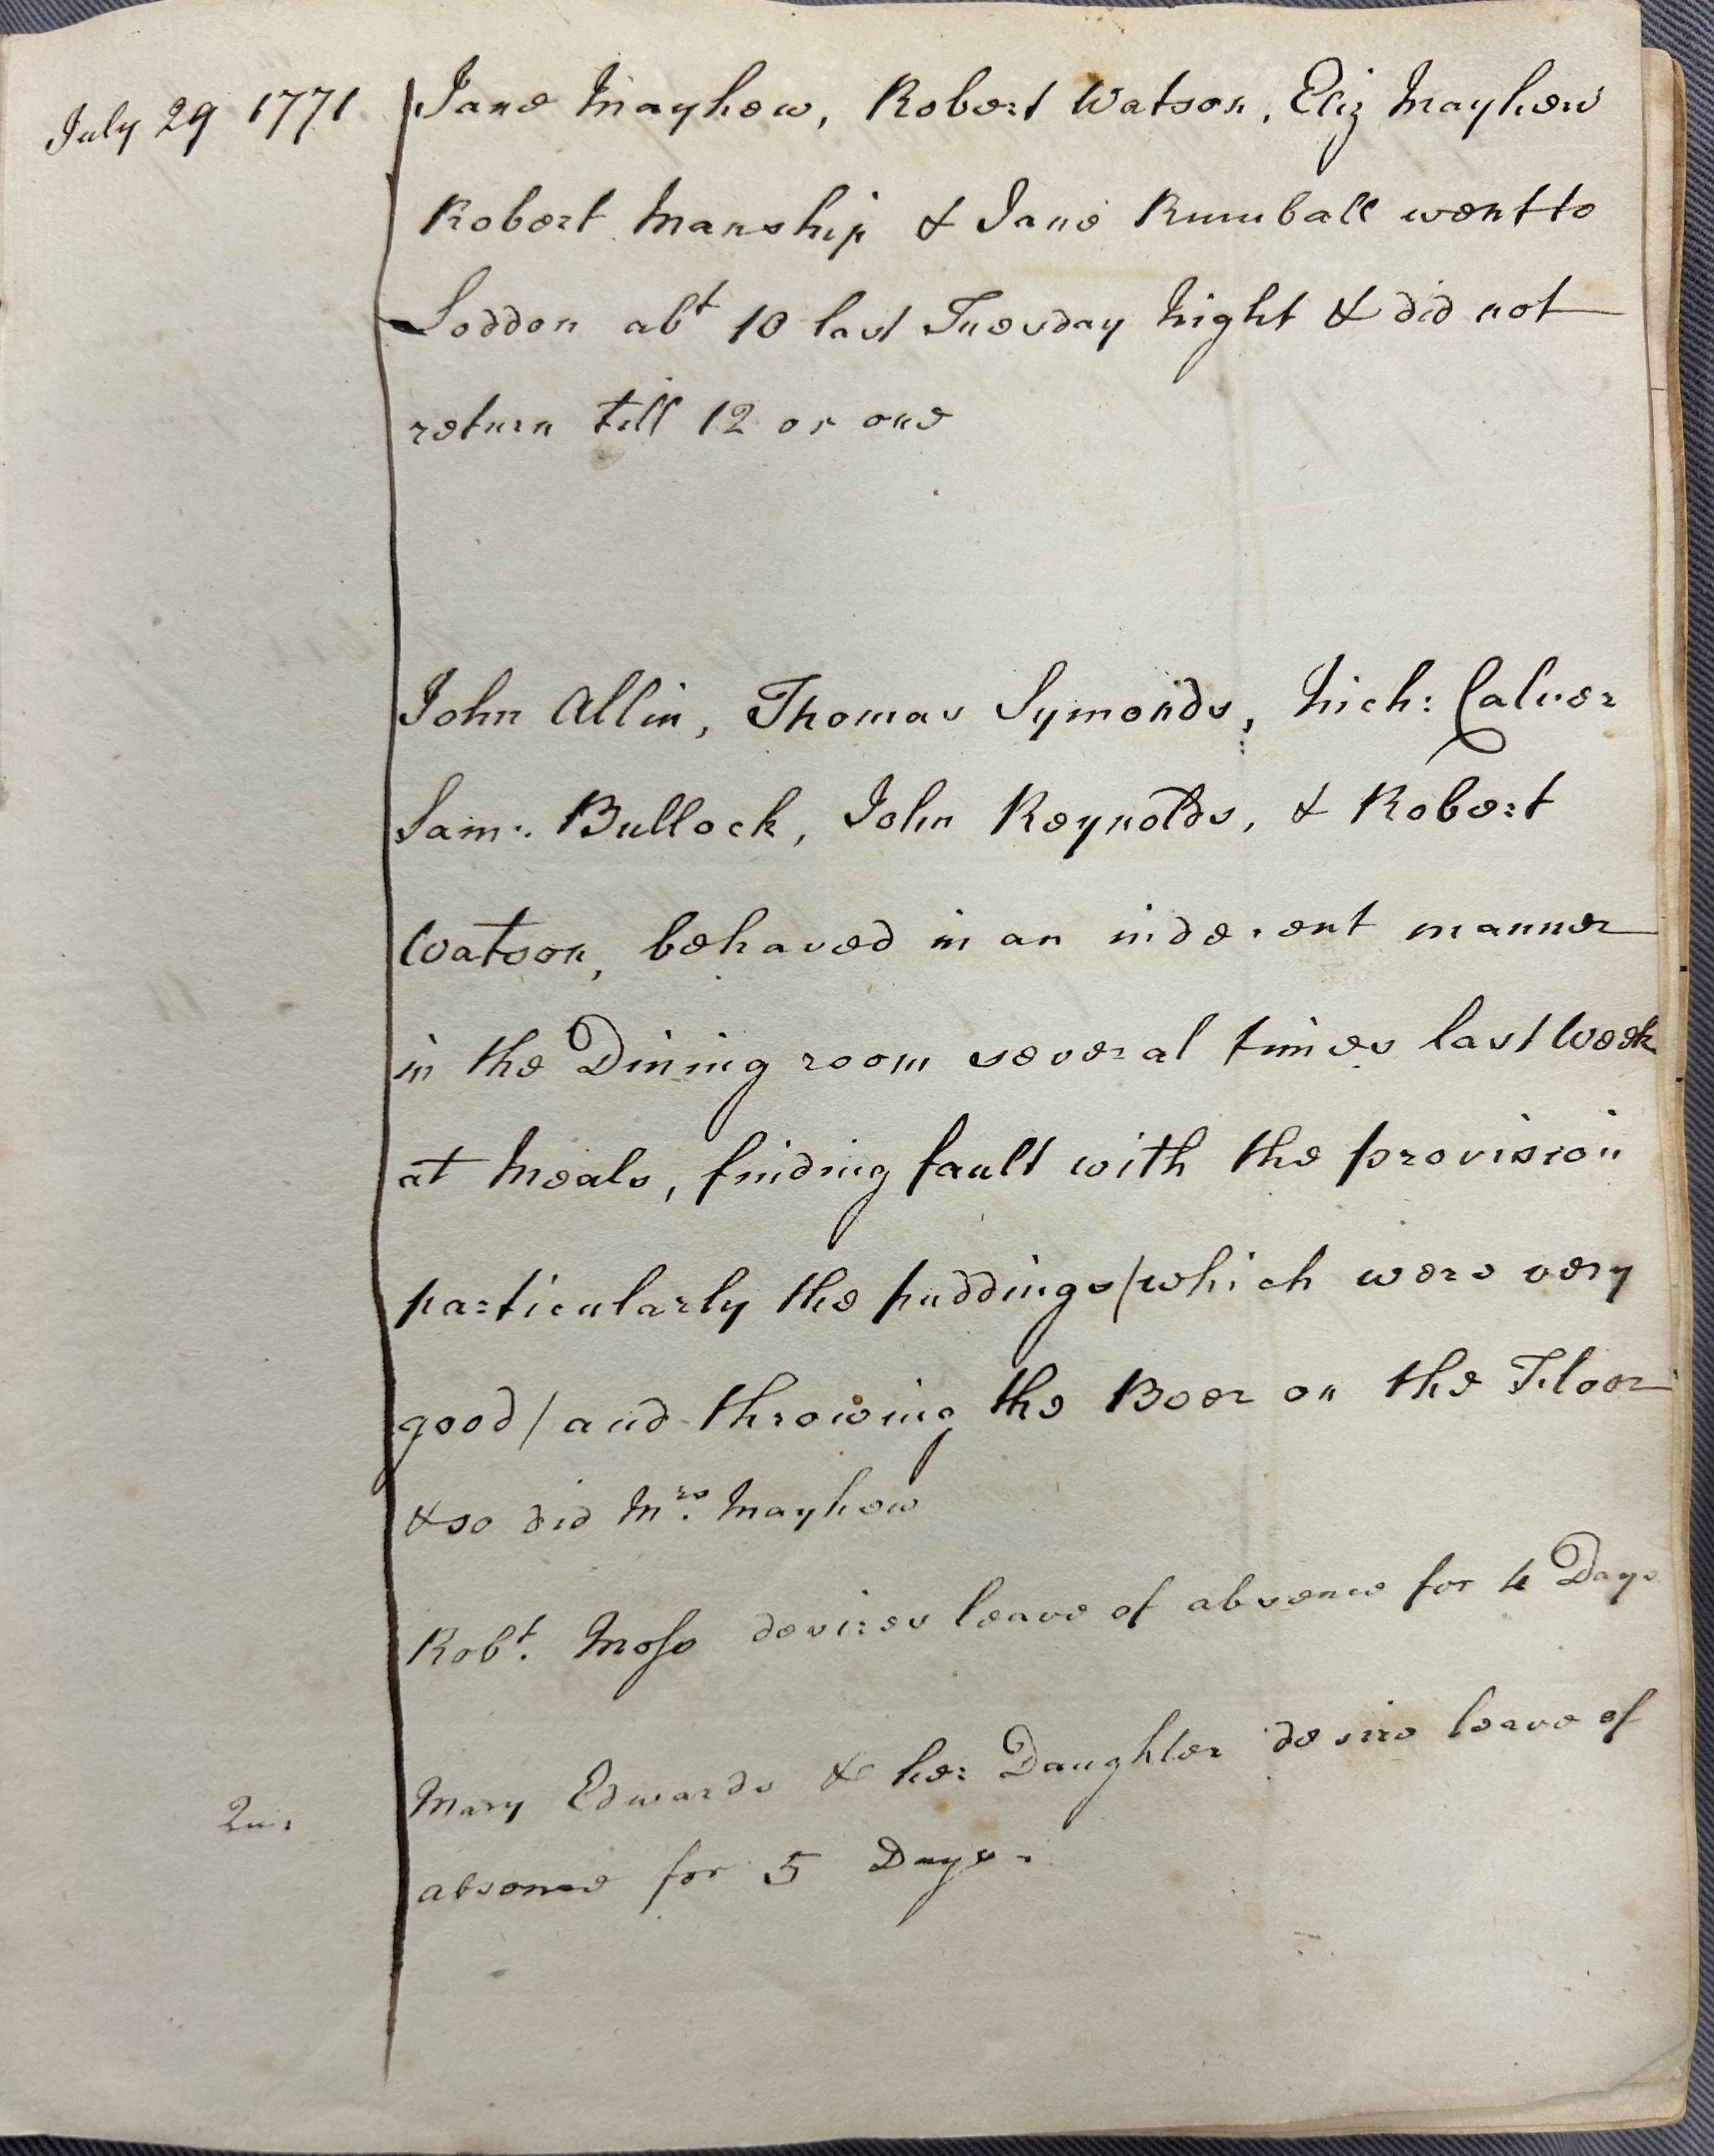 July 29 1771
Jane Mayhew, Robert Watson, Eliz Mayhew
Robert Manship & Jane Rumball went to
Loddon abt 10 last Tuesday Night & did not
return till 12 or one
John Allin, Thomas Symonds, Nich: Calver
Sam: Bullock, John Reynolds, & Robert
Watson, behaved in an indecent manner
in the Dining room several times last Week
at Meals, finding fault with the provision
particularly the puddings/which were very
good/and throwing the Beer on the Floor
& so did Mrs. Mayhew
Robt. Moss desires leave of absence for 4 Days
Mary Edwards & her Daughter desire leave of
absence for 5 Days.